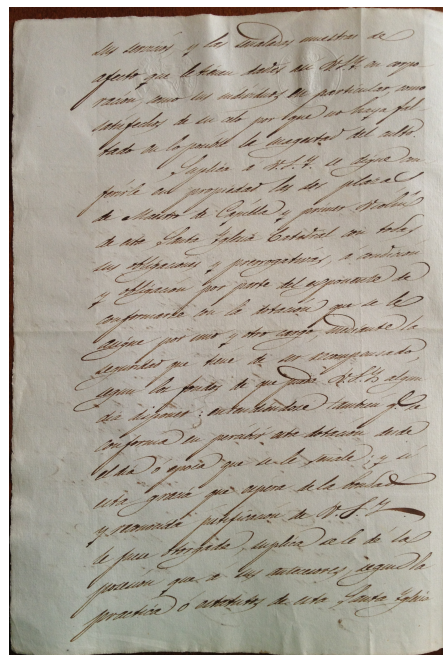 sus servicios y las señaladas muestras de
afecto que le tiene dadas así V.S.Y. en corpo
ración, como sus individuos en particular, como
satisfechos de su celo por que no haya fal
tado en lo posible la magestad del culto.
Suplica a V.S.Y. se digne con
ferirle en propiedad las dos plazas
de Maestro de Capilla y primer Violin
de esta Santa Yglesia Catedral con todas
sus obligaciones y prerrogativas, a condicion
y obligacion por parte del esponente de
conformarse con la dotación que se le
asigne por uno y otro cargo, mediante la
seguridad que tiene de ser recompensado
segun los fondos de que pueda V.S.Y. algun
dia disponer; entendiendose tambien q.e se
conforma en percibir esta dotacion desde
el dia ó época que se le señale; y si
esta gracia que espera de la bondad
y reconocida justificacion de V.S.Y.
le fuese otorgada, suplica se le dé la
posesion que a sus antecesores, segun la
practica ó estatutos de esta Santa Yglesia